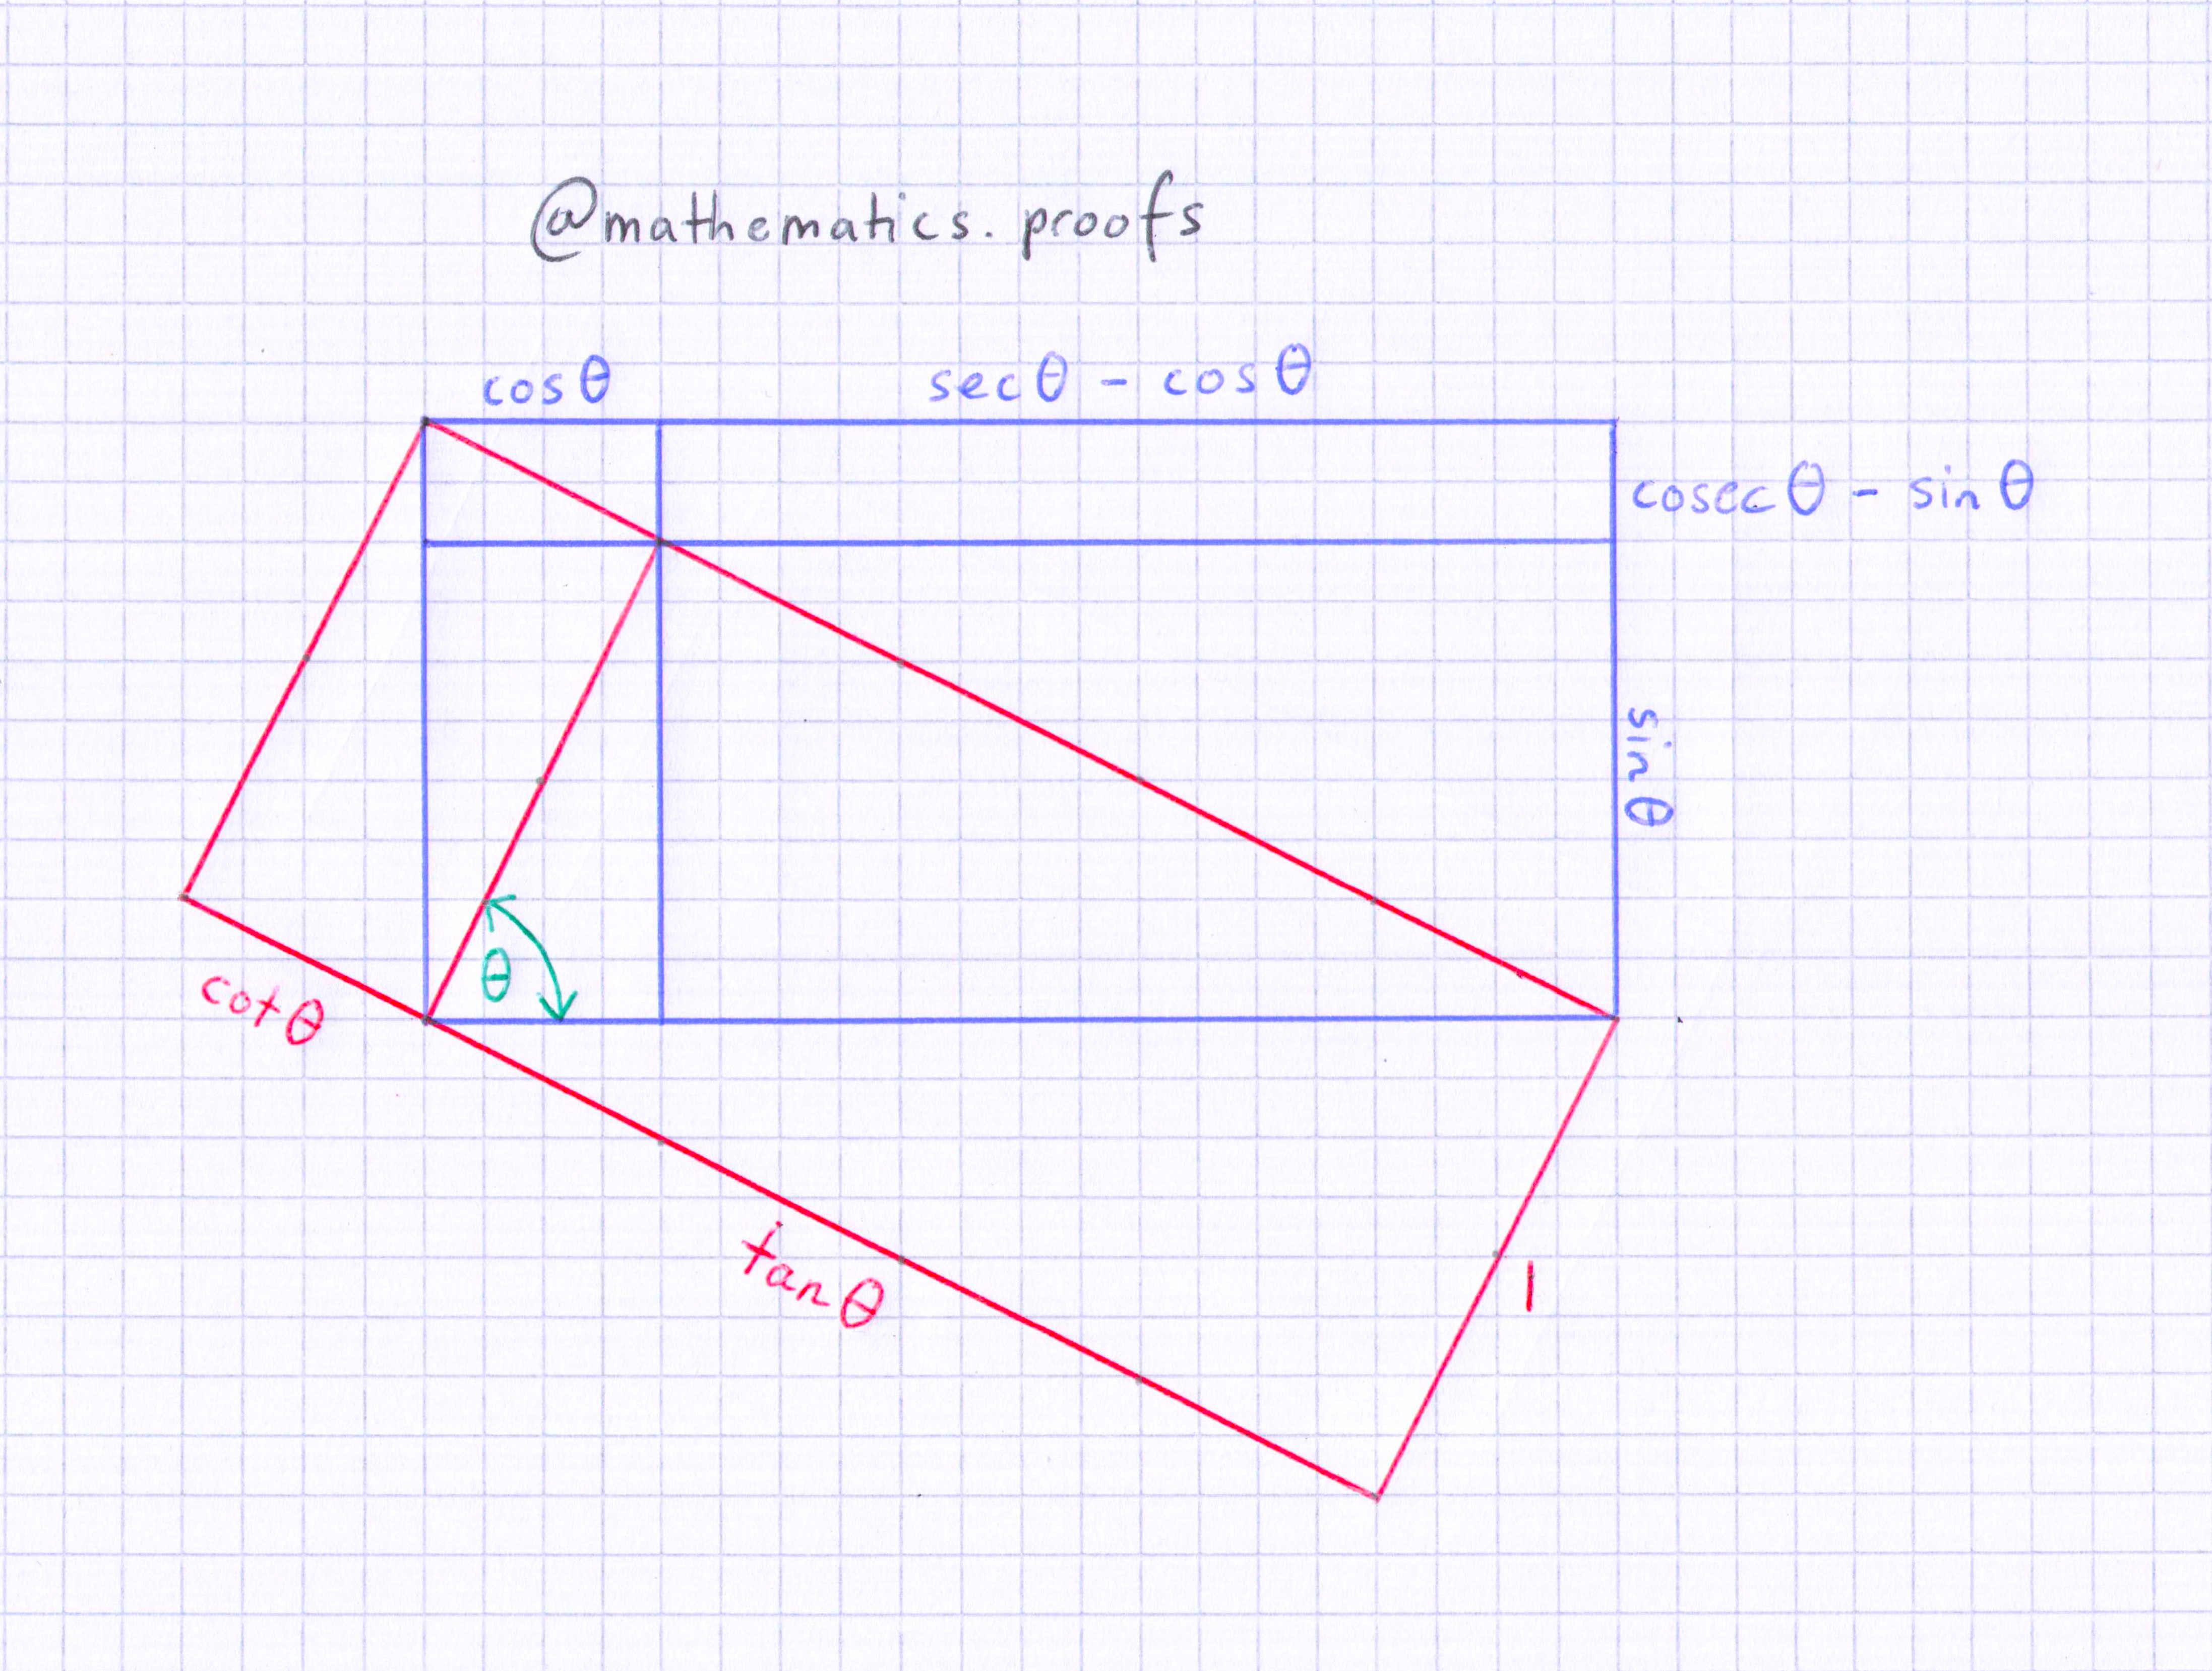 @mathematics.proofs
cos θ
sec θ - cos θ
cosec θ - sin θ
sin θ
θ
cot θ
tan θ
1